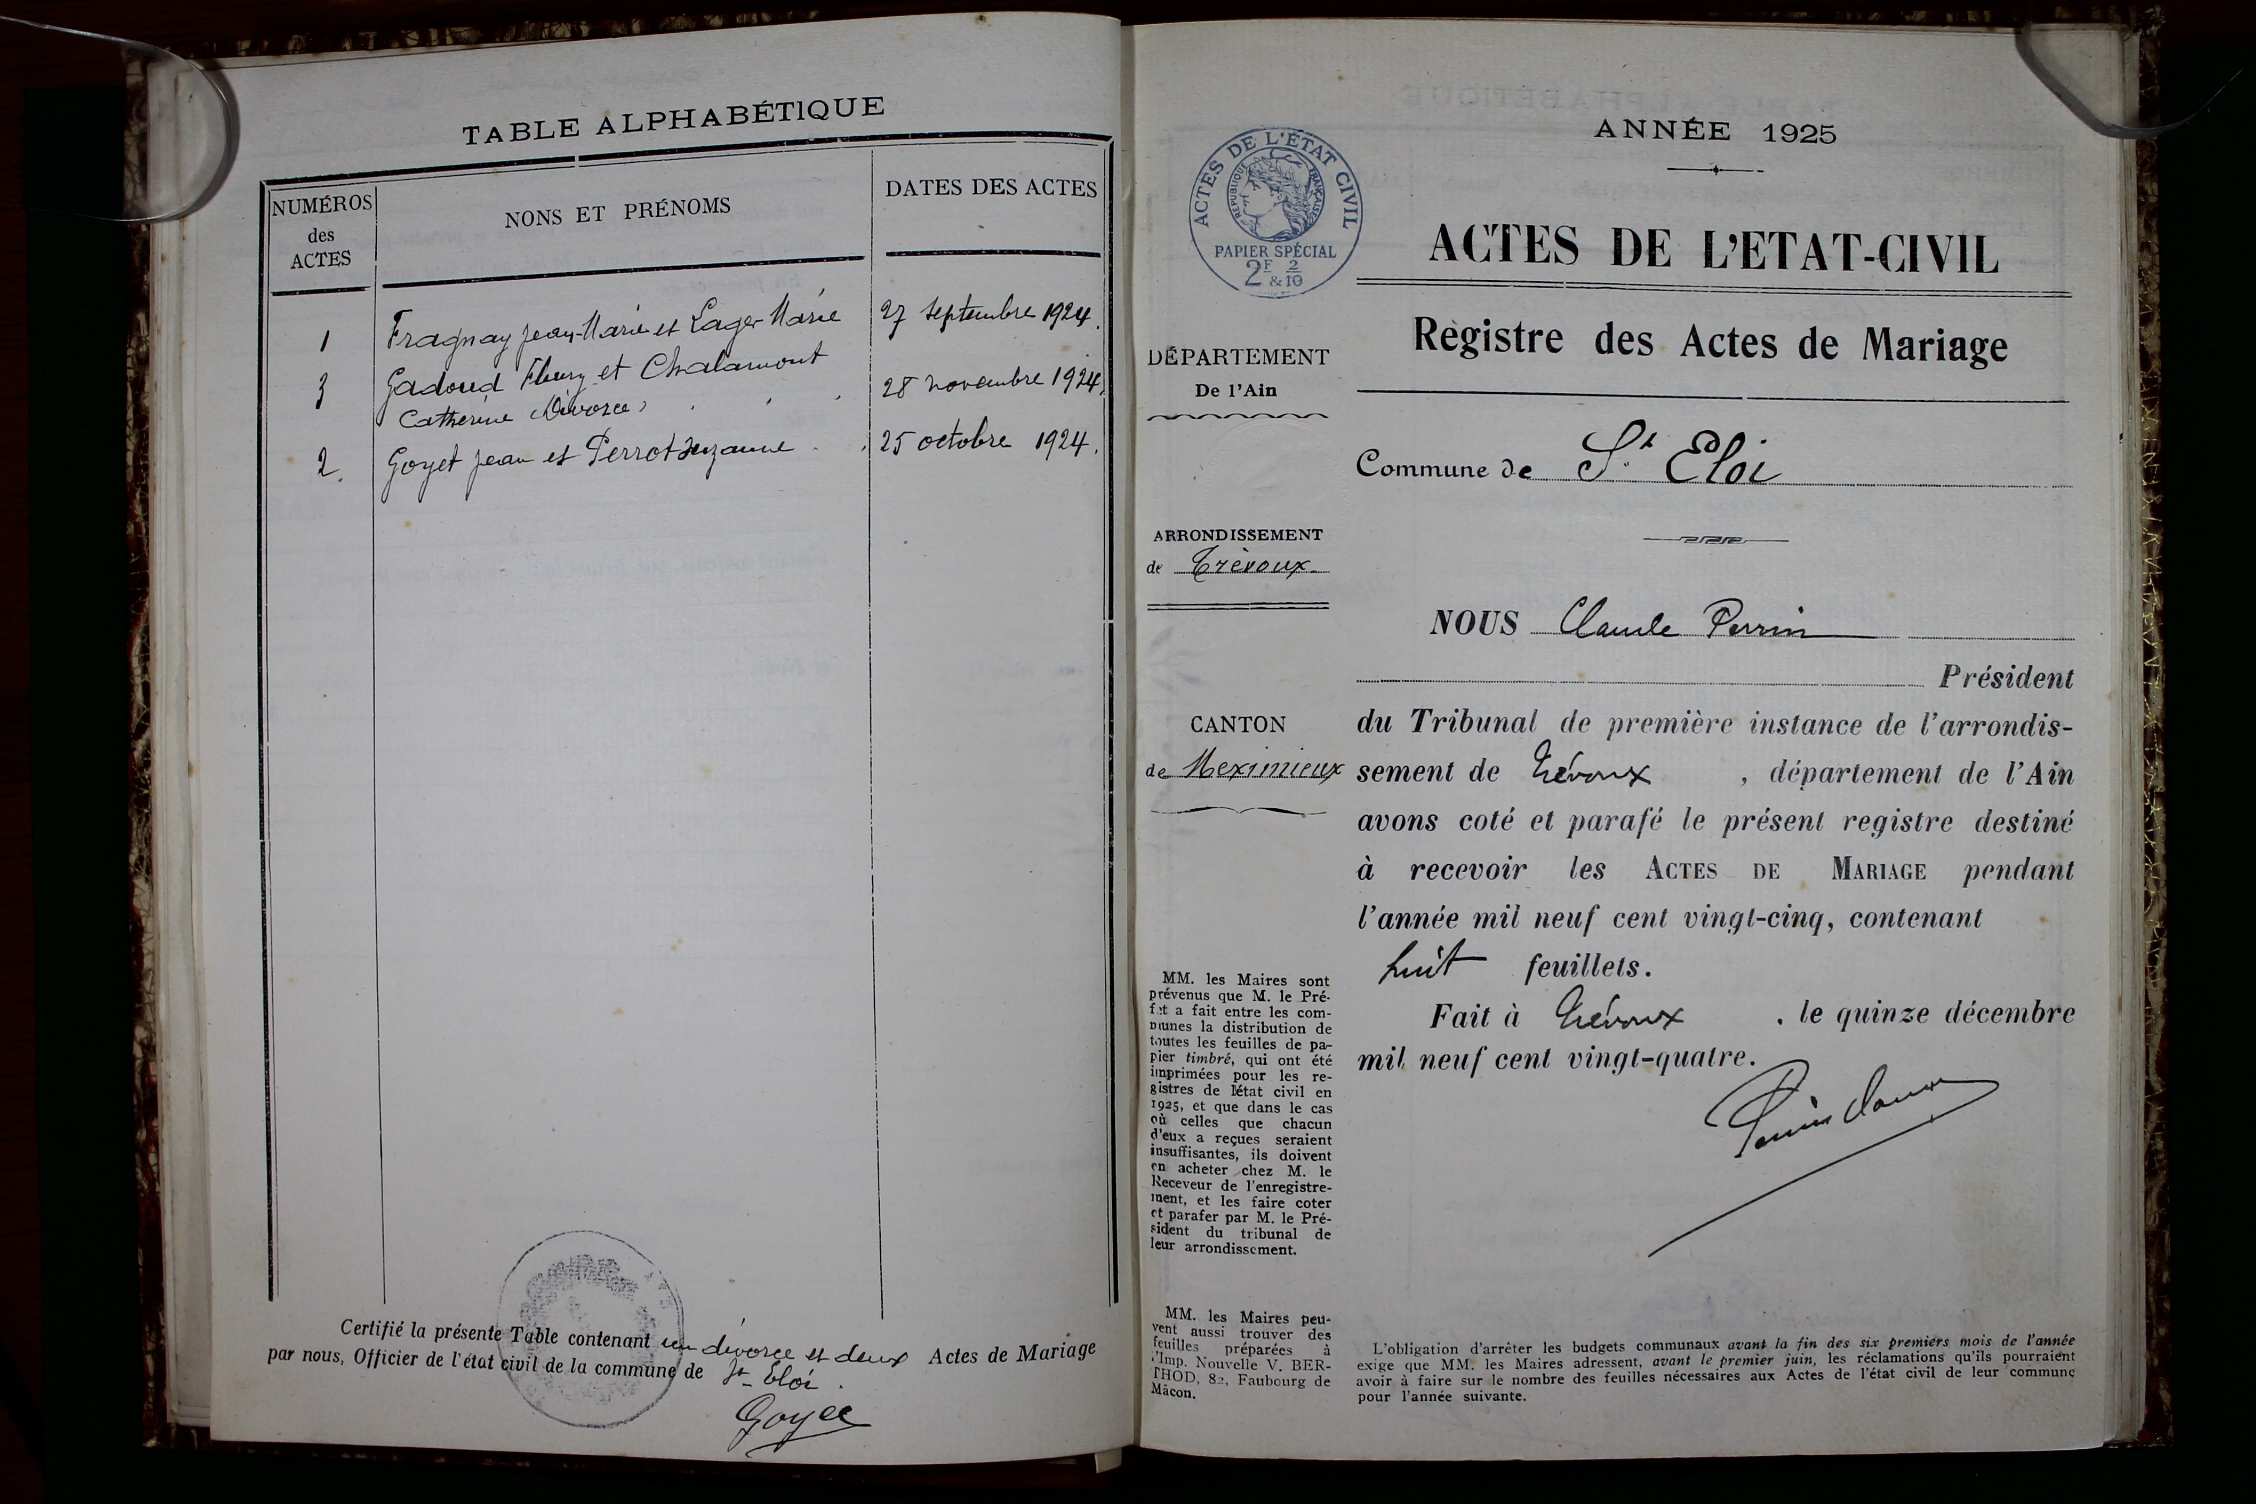 TABLE ALPHABÉTIQUE
NUMÉROS
des
ACTES
NONS ET PRÉNOMS
DATES DES ACTES
1 Fragnay Jean-Marie et Lager Marie 27 Septembre 1924.
3 Gadoud Fleury et Chalamont 28 novembre 1924.
Catherine (Divorce)
2. Goyet Jean et Perrot Suzanne 25 octobre 1924.
Certifié la présente Table contenant un divorce et deux Actes de Mariage
par nous, Officier de l'état civil de la commune de St Eloi.
ANNÉE 1925
ACTES DE L'ÉTAT CIVIL
RÉPUBLIQUE FRANÇAISE
PAPIER SPÉCIAL
2F & 2/10
ACTES DE L'ETAT-CIVIL
Registre des Actes de Mariage
DÉPARTEMENT
De l'Ain
Commune de St Eloi
ARRONDISSEMENT
de Trévoux
CANTON
de Meximieux
NOUS Claude Perrin
Président
du Tribunal de première instance de l'arrondis-
sement de Trévoux, département de l'Ain
avons coté et parafé le présent registre destiné
à recevoir les ACTES DE MARIAGE pendant
l'année mil neuf cent vingt-cinq, contenant
huit feuillets.
Fait à Trévoux, le quinze décembre
mil neuf cent vingt-quatre.
MM. les Maires sont
prévenus que M. le Pré-
fet a fait entre les com-
munes la distribution de
toutes les feuilles de pa-
pier timbré, qui ont été
imprimées pour les re-
gistres de l'état civil en
1925, et que dans le cas
où celles que chacun
d'eux a reçues seraient
insuffisantes, ils doivent
en acheter chez M. le
Receveur de l'enregistre-
ment, et les faire coter
et parafer par M. le Pré-
sident du tribunal de
leur arrondissement.
MM. les Maires peu-
vent aussi trouver des
feuilles préparées à
l'Imp. Nouvelle V. BER-
THOD, 82, Faubourg de
Mâcon.
L'obligation d'arrêter les budgets communaux avant la fin des six premiers mois de l'année
exige que MM. les Maires adressent, avant le premier juin, les réclamations qu'ils pourraient
avoir à faire sur le nombre des feuilles nécessaires aux Actes de l'état civil de leur commune
pour l'année suivante.